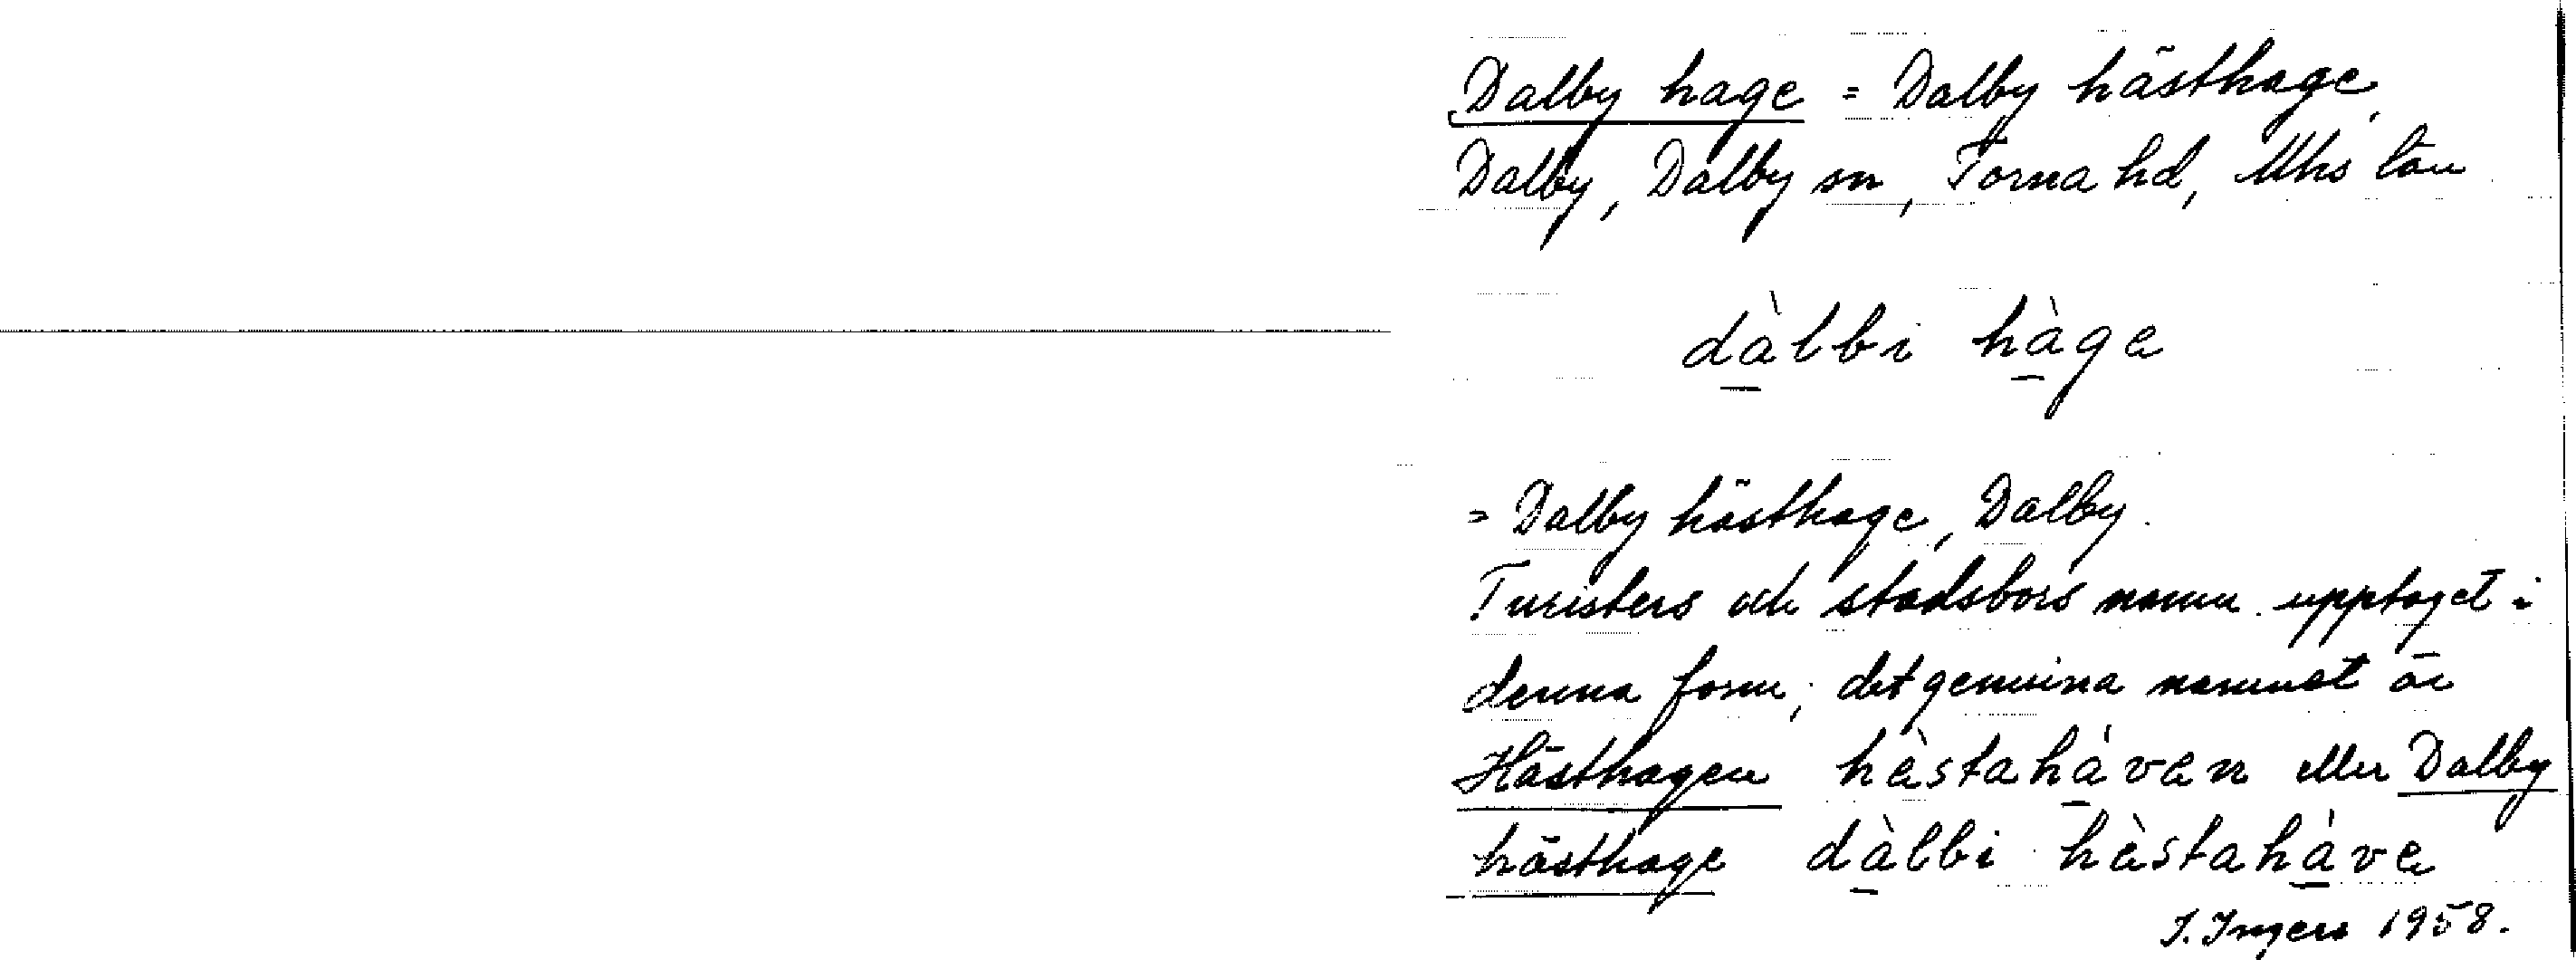 Dalby hage = Dalby hästhage,
Dalby, Dalby sn, Torna hd, Mhs län
dàlbi hàge
= Dalby hästhage, Dalby.
Turisters och stadsbors namn upptaget i
denna form; det genuina namnet är
Hästhagen hèstahàven eller Dalby
hästhage dàlbi hèstahàve
I. Ingers 1958.